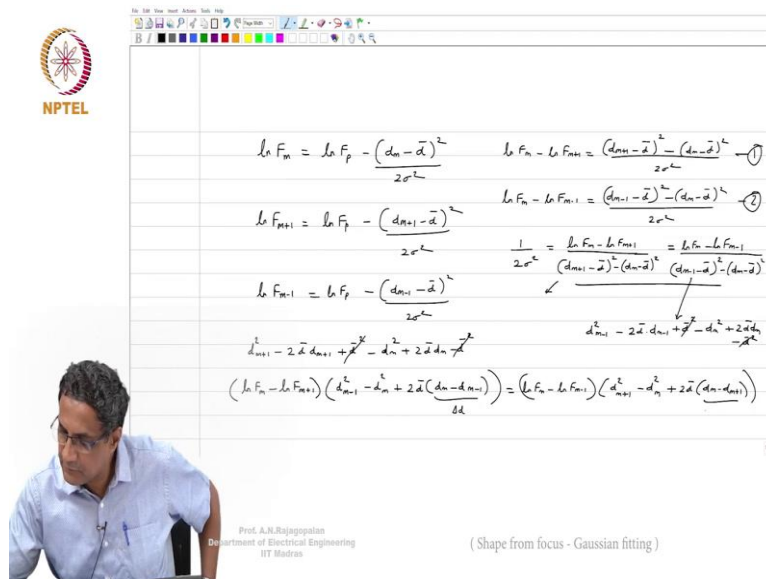 File Edit View Insert Actions Tools Help
Page Width
B I
NPTEL
ln F_m = ln F_p - (d_m - d̄)² / 2σ²
ln F_{m+1} = ln F_p - (d_{m+1} - d̄)² / 2σ²
ln F_{m-1} = ln F_p - (d_{m-1} - d̄)² / 2σ²
ln F_m - ln F_{m+1} = ((d_{m+1} - d̄)² - (d_m - d̄)²) / 2σ² - ①
ln F_m - ln F_{m-1} = ((d_{m-1} - d̄)² - (d_m - d̄)²) / 2σ² - ②
1 / 2σ² = (ln F_m - ln F_{m+1}) / ((d_{m+1} - d̄)² - (d_m - d̄)²) = (ln F_m - ln F_{m-1}) / ((d_{m-1} - d̄)² - (d_m - d̄)²)
d²_{m-1} - 2d̄.d_{m-1} + d̄² - d_m² + 2d̄d_m
- d̄²
d²_{m+1} - 2d̄d_{m+1} + d̄² - d_m² + 2d̄d_m - d̄²
(ln F_m - ln F_{m+1}) (d²_{m-1} - d²_m + 2d̄(d_m - d_{m-1})) = (ln F_m - ln F_{m-1}) (d²_{m+1} - d²_m + 2d̄(d_m - d_{m+1}))
Δd
Prof. A.N.Rajagopalan
Department of Electrical Engineering
IIT Madras
( Shape from focus - Gaussian fitting )